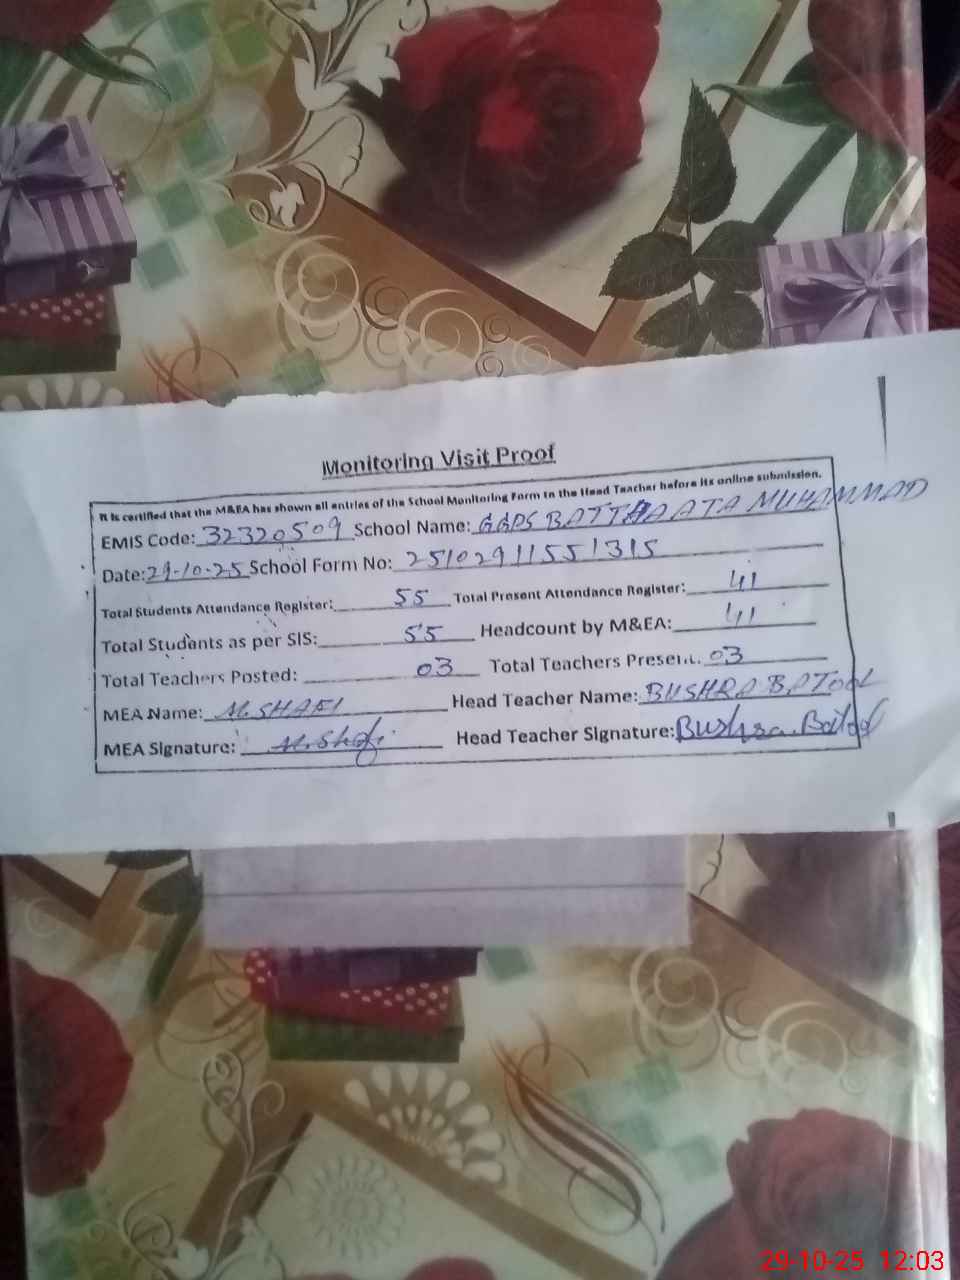 Monitoring Visit Proof
It is certified that the M&EA has shown all entries of the School Monitoring Form to the Head Teacher before its online submission.
EMIS Code: 32320509 School Name: GGPS BATTHA ATA MUHAMMAD
Date: 29-10-25 School Form No: 25102911551315
Total Students Attendance Register: 55 Total Present Attendance Register: 41
Total Students as per SIS: 55 Headcount by M&EA: 41
Total Teachers Posted: 03 Total Teachers Present: 03
MEA Name: M.SHAFI Head Teacher Name: BUSHRA BATOOL
MEA Signature: M.Shafi Head Teacher Signature: Bushra Batool
29-10-25 12:03